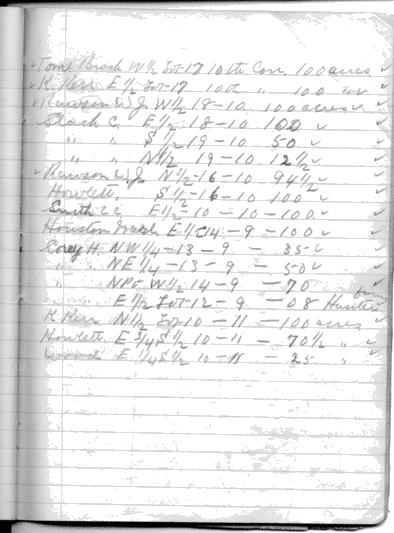 ✓ Tom Brock W½ Lot-17 10th Con. 100 acres ✓
✓ K. Kerr E½ Lot-17 10th " 100 " ✓
✓ Rawson W.J. W½ 18-10 100 acres ✓
Slack C. E½ 18-10 100 ✓
" " S½ 19-10 50 ✓
" " N½ 19-10 12½ ✓
✓ Rawson W.J. N½-16-10 94½ ✓
Howlett. S½-16-10 100 ✓
Smith E½-10-10-100 ✓
Houston E½ 14-9-100 ✓
Corey H. NW¼-13-9-35 ✓
" NE¼-13-9-50 ✓
" W½ 14-9-70 ✓
" E½ Lot-12-9-08 Hunter ✓
K. Kerr N½ Lot 10-11-100 acres ✓
Howlett E¾ S½ 10-11-70½ " ✓
E¼ S½ 10-11-25 " ✓